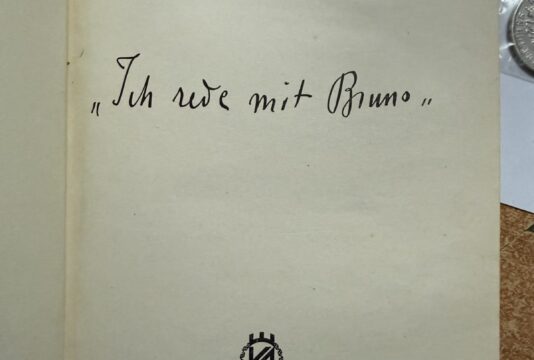 „Ich rede mit Bruno„